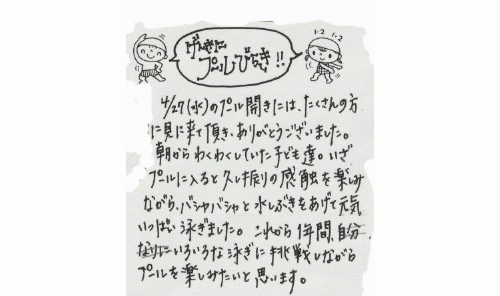 げんきに
プールびらき!!
1・2 1・2
4/27(水)のプール開きには、たくさんの方
に見に来て頂き、ありがとうございました。
朝からわくわくしていた子ども達。いざ
プールに入ると久し振りの感触を楽しみ
ながら、バシャバシャと水しぶきをあげて元気
いっぱい泳ぎました。これから1年間、自分
なりにいろいろな泳ぎに挑戦しながら
プールを楽しみたいと思います。